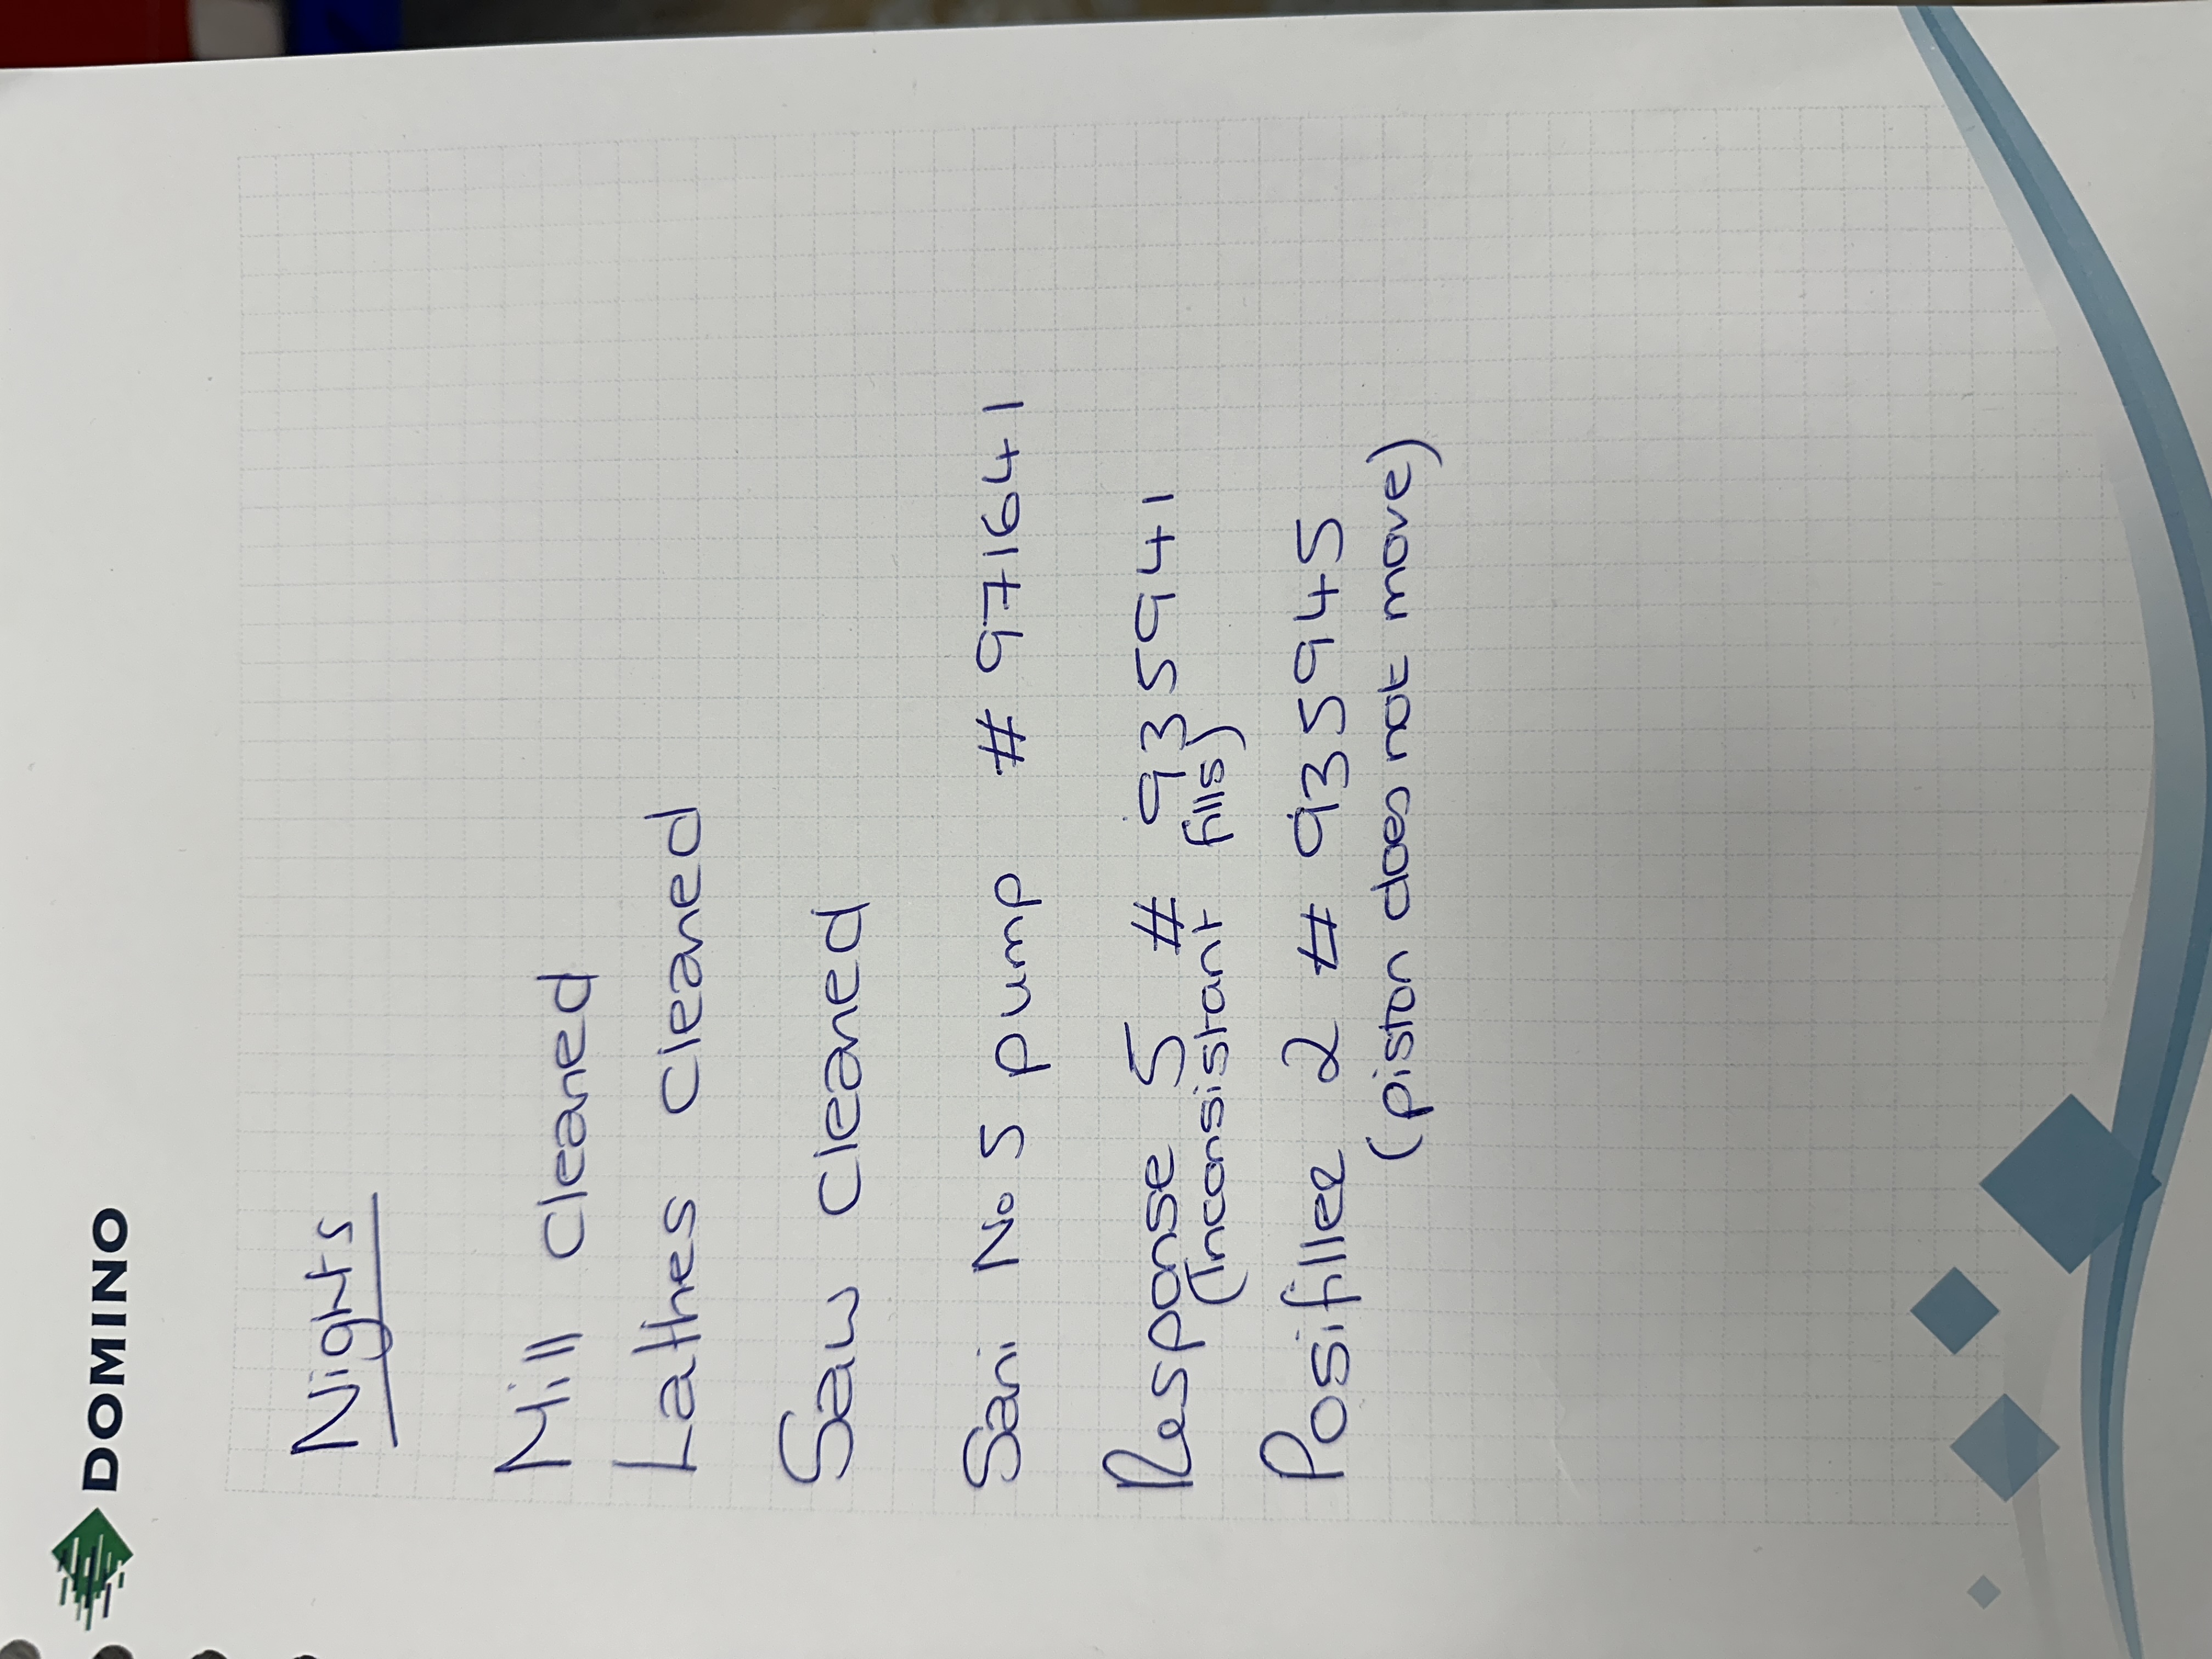 DOMINO
Nights
Mill Cleaned
Lathes Cleaned
Saw Cleaned
Sani No 5 pump # 971641
Response 5 # 935941
(Inconsistant fills)
Posifiller 2 # 935945
(piston does not move)